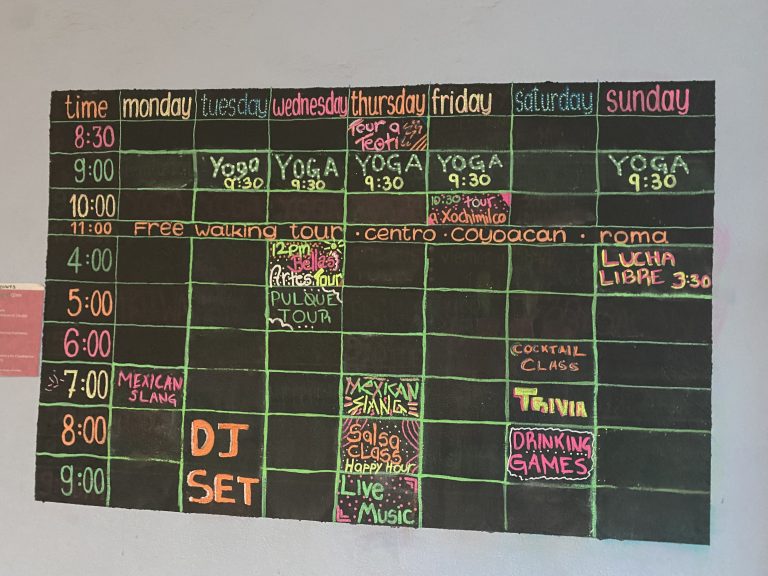 time monday tuesday wednesday thursday friday saturday sunday
8:30 Tour a
Teoti
9:00 Yoga YOGA YOGA YOGA YOGA
9:30 9:30 9:30 9:30 9:30
10:00 10:30 tour
a Xochimilco
11:00 Free walking tour · centro · Coyoacan · roma
4:00 12pm
Bellas
Artes Tour
LUCHA
LIBRE 3:30
5:00 PULQUE
TOUR
6:00 COCKTAIL
CLASS
7:00 MEXICAN
SLANG
MEXICAN
SLANG
TRIVIA
8:00 DJ
SET
Salsa
CLASS
HAPPY HOUR
DRINKING
GAMES
9:00 Live
Music